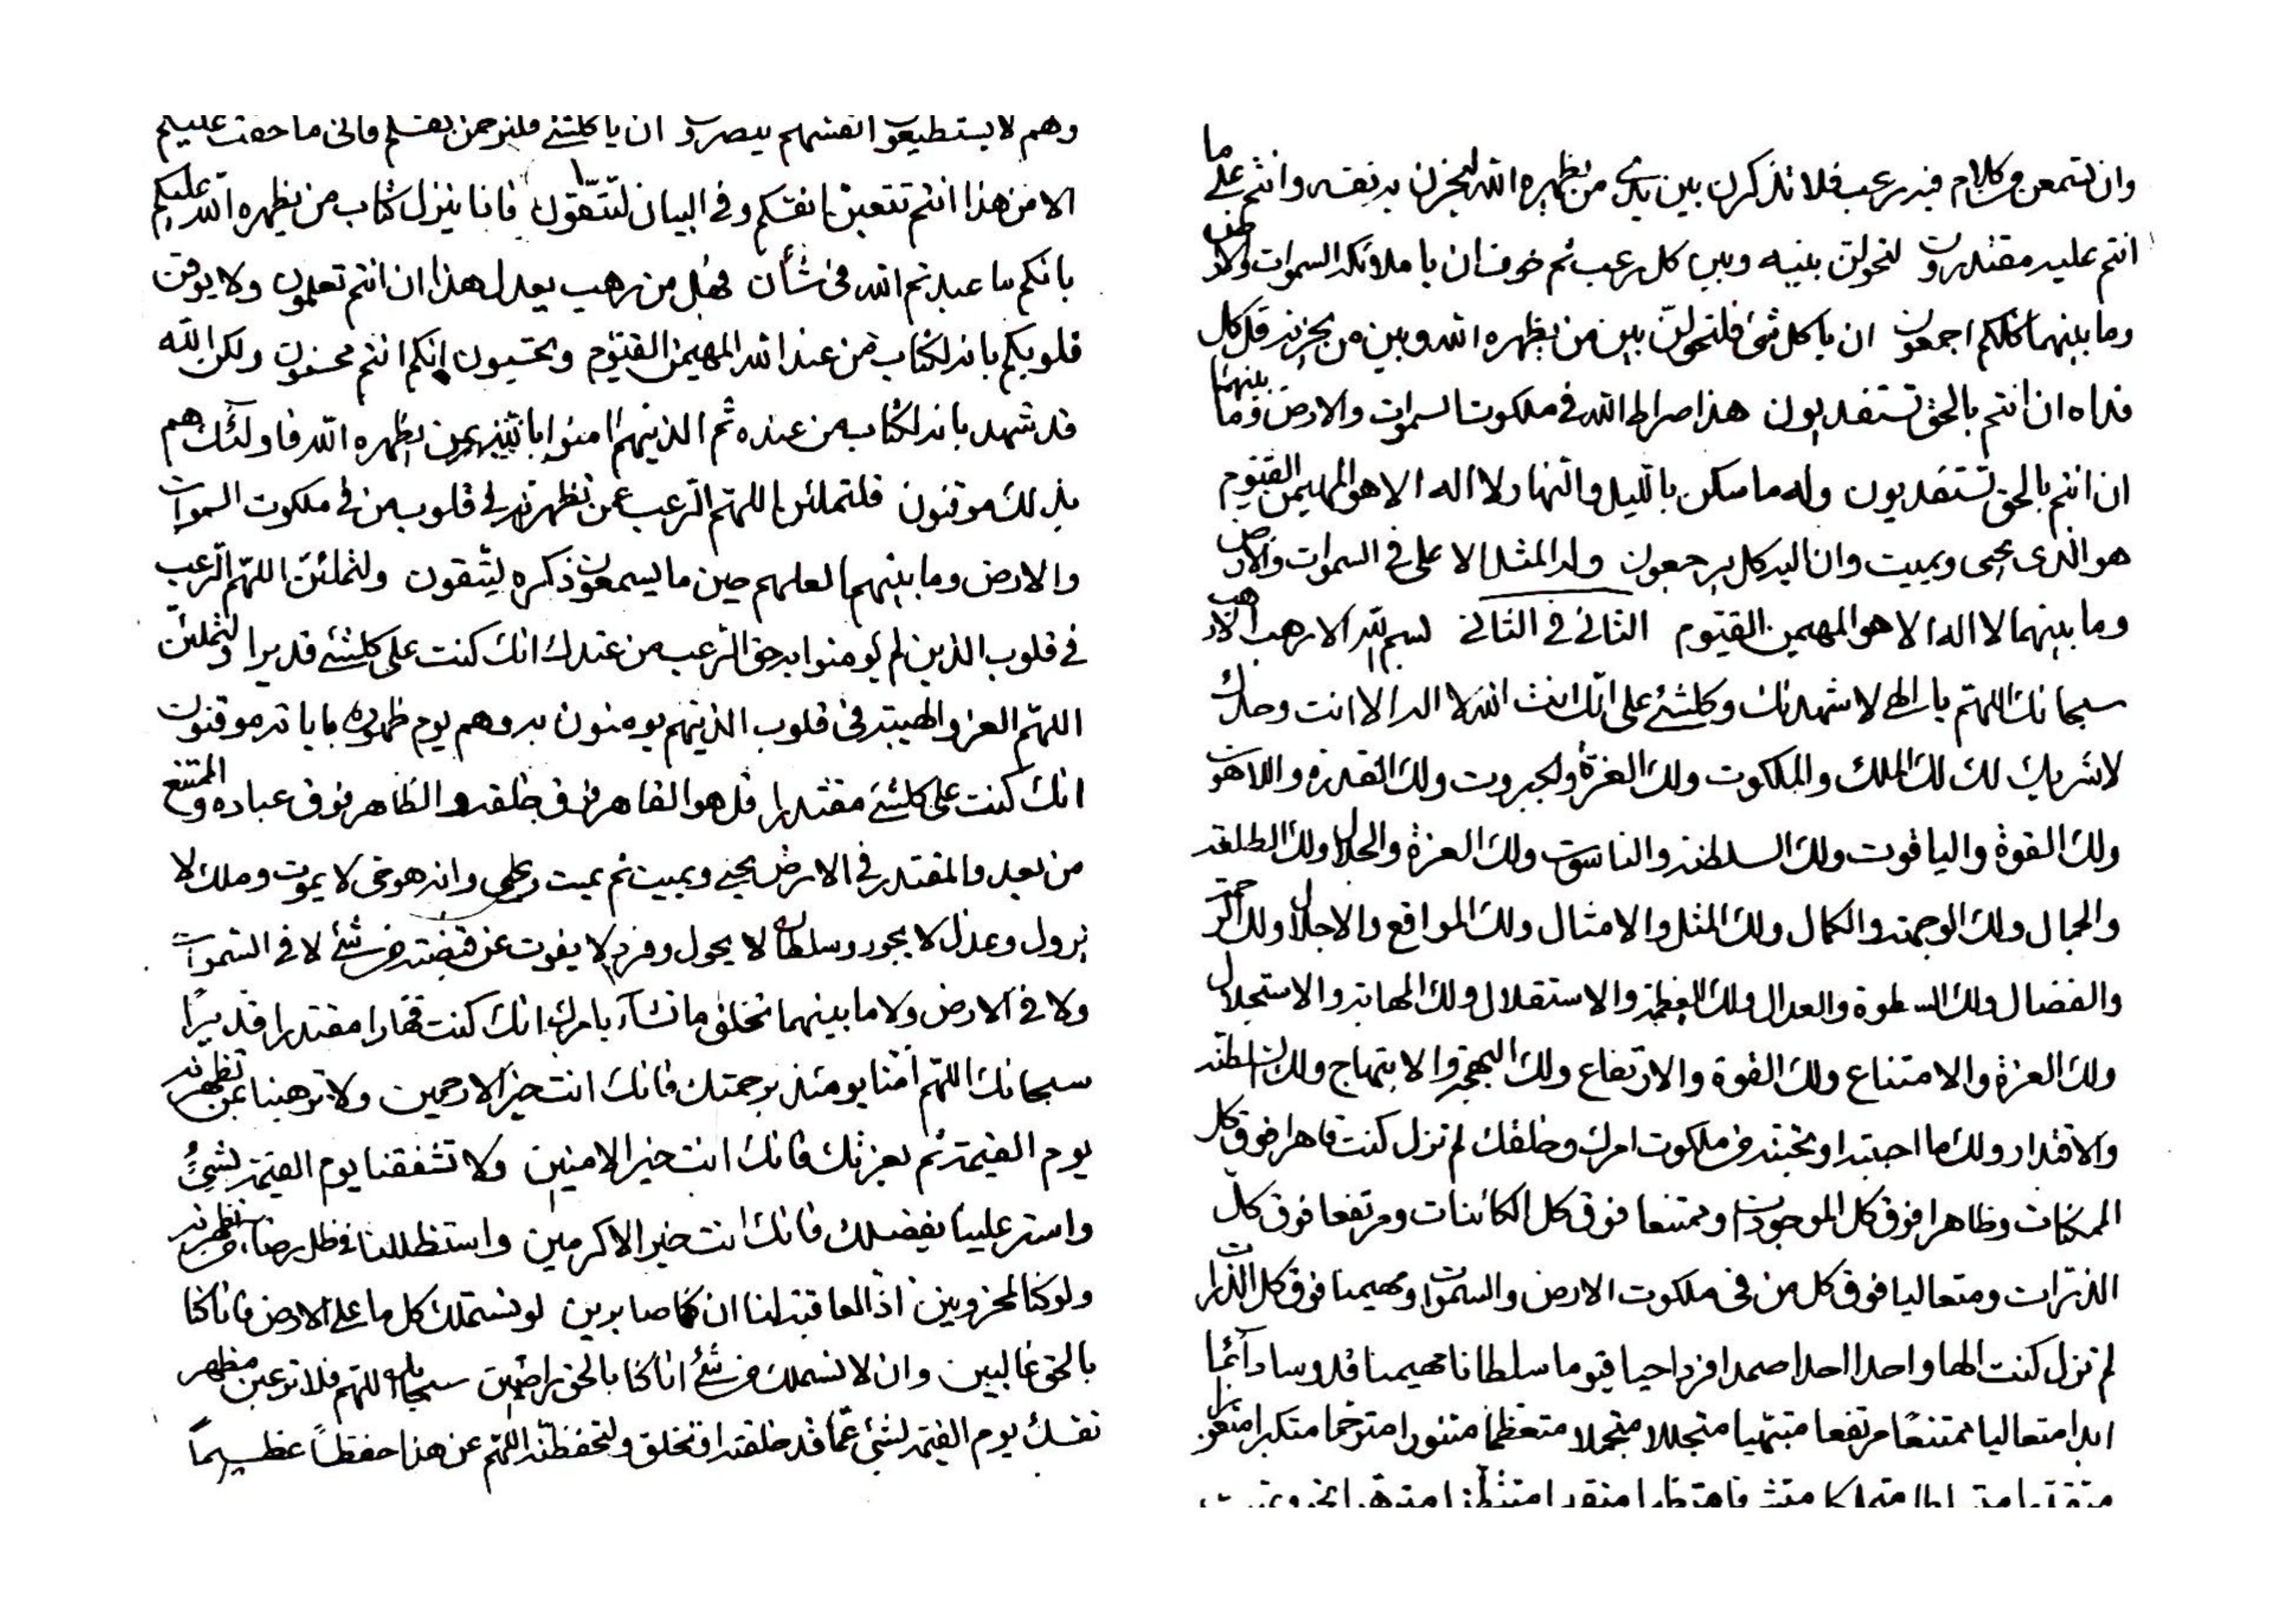 وان تسمعن من كلام فيه رعب فلا تذكرن بين يدي من يظهره الله ليحزن به نفسه وانتم على ما
انتم عليه مقتدرون لتحولن بينه وبين كل رعب ثم خوف ان يا ملائكة السموات والارض
وما بينهما كلكم اجمعون ان يا كل شئ فلتحولن بين من يظهره الله وبين من يحزنه قل كل
فداه ان انتم بالحق تستفديون هذا صراط الله في ملكوت السموات والارض وما بينهما
ان انتم بالحق تستفديون وله ما سكن بالليل والنهار لا اله الا هو المهيمن القيوم
هو الذى يحيى ويميت وان اليه كل يرجعون وله المثل الاعلى في السموات والارض
وما بينهما لا اله الا هو المهيمن القيوم الثاني في الثاني بسم الله الارهب الارهب
سبحانك اللهم يا الهي لاشهدنك وكلشئ على انك انت الله لا اله الا انت وحدك
لا شريك لك لك الملك والملكوت ولك العزة والجبروت ولك القدرة واللاهوت
ولك القوة والياقوت ولك السلطنة والناسوت ولك العزة والجلال ولك الطلعة
والجمال ولك الوجهة والكمال ولك المثل والامثال ولك المواقع والاجلال ولك الرحمة
والفضال ولك السطوة والعدال ولك العظمة والاستقلال ولك المهابة والاستجلال
ولك العزة والامتناع ولك القوة والارتفاع ولك البهجة والابتهاج ولك السلطنة
والاقتدار ولك ما احببته او تحبنه من ملكوت امرك وخلقك لم تزل كنت قاهرا فوق كل
الممكنات وظاهرا فوق كل الموجودات وممتنعا فوق كل الكائنات ومرتفعا فوق كل
الذرات ومتعاليا فوق كل من في ملكوت الارض والسموات ومهيمنا فوق كل الذرات
لم تزل كنت الها واحدا احدا صمدا فردا حيا قيوما سلطانا مهيمنا قدوسا دآئما
ابدا متعاليا ممتنعا مرتفعا مبتهيا متجللا متجملا متعظما متنورا مترحما متكبرا متعززا
وهم لا يستطيعون انفسهم ينصرون ان يا كلشئ فلترحمن انفسكم فاني ما خفت عليكم
الا من هذا انتم تتعبن انفسكم وفي البيان لتتقون فانا ينزل كتاب من يظهره الله عليكم
بانكم ما عبدتم الله في شأن فهل من رهب يعدل هذا ان انتم تعلمون ولا يوقن
قلوبكم بانه لكتاب من عند الله المهيمن القيوم وتحسبون انكم انتم محسنون ولكن الله
قد شهد بانه لكتاب من عنده ثم الذينهم امنوا بالله ثم بمن يظهره الله فاولئك هم
بذلك موقنون فلتملئن اللهم الرعب عمن تظهرنه في قلوب من في ملكوت السموات
والارض وما بينهم لعلهم حين ما يسمعون ذكره ليتقون ولتملئن اللهم الرعب
في قلوب الذين لم يؤمنوا به حق الرعب من عندك انك كنت على كلشئ قديرا ولتملئن
اللهم العز والهيبة في قلوب الذينهم يومنون به وهم يوم ظهوره باياته موقنون
انك كنت على كلشئ مقتدرا قل هو القاهر فوق خلقه والظاهر فوق عباده والممتنع
من بعد والمقتدر في الارض يحيي ويميت ثم يميت ويحيى وانه هو حى لا يموت وملك لا
يزول وعدل لا يجور وسلطان لا يحول وفرد لا يفوت عن قبضته من شئ لا في السموات
ولا في الارض ولا ما بينهما تخلق ما تشآء بامرك انك كنت قهارا مقتدرا قديرا
سبحانك اللهم امنا يومئذ برحمتك فانك انت خير الارحمين ولا ترهبنا عن تظهرنه
يوم القيمة ثم بعزتك فانك انت خير الامنين ولا تشفقنا يوم القيمة بشئ
واستر علينا بفضلك فانك انت خير الاكرمين واستظللنا في ظل رضاء من تظهرنه
ولو كنا لمحزونين اذ العاقبة لنا ان كنا صابرين لو نستملك كل ما على الارض فانا كنا
بالحق غالبين وان لا نستملك من شئ انا كنا بالحق راضين سبحانك اللهم فلا ترعبن مظهر
نفسك يوم القيمة بشئ عما قد خلقته او تخلق ولتحفظنه اللهم عن هذا حفظا عظيما